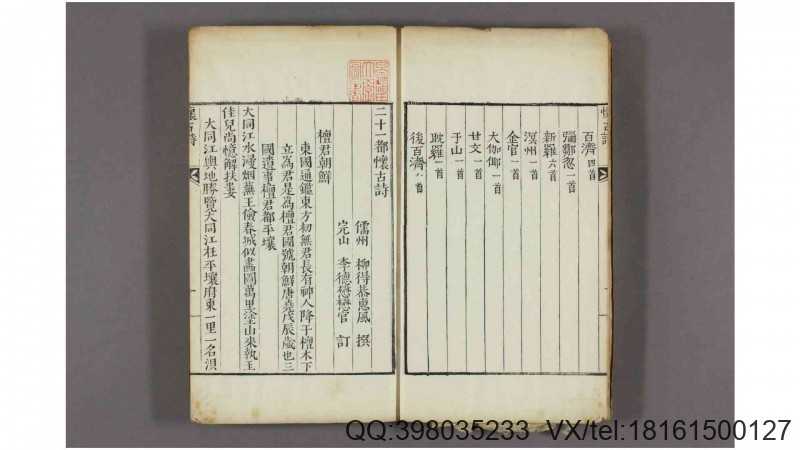 懷古詩
百濟 四首
彌鄒忽 一首
新羅 六首
溟州 一首
金官 一首
大伽倻 一首
甘文 一首
于山 一首
耽羅 一首
後百濟 八首
二十一都懷古詩
儒州 柳得恭惠風 撰
完山 李德懋懋官 訂
檀君朝鮮
東國通鑑東方初無君長有神人降于檀木下
立為君是為檀君國號朝鮮唐堯戊辰歲也三
國遺事檀君都平壤
大同江水浸烟蕪王儉春城似畵圖萬里塗山來執玉
佳兒尚憶解扶婁
大同江輿地勝覽大同江在平壤府東一里一名浿
懷古詩
一
QQ:398035233 VX/tel:18161500127